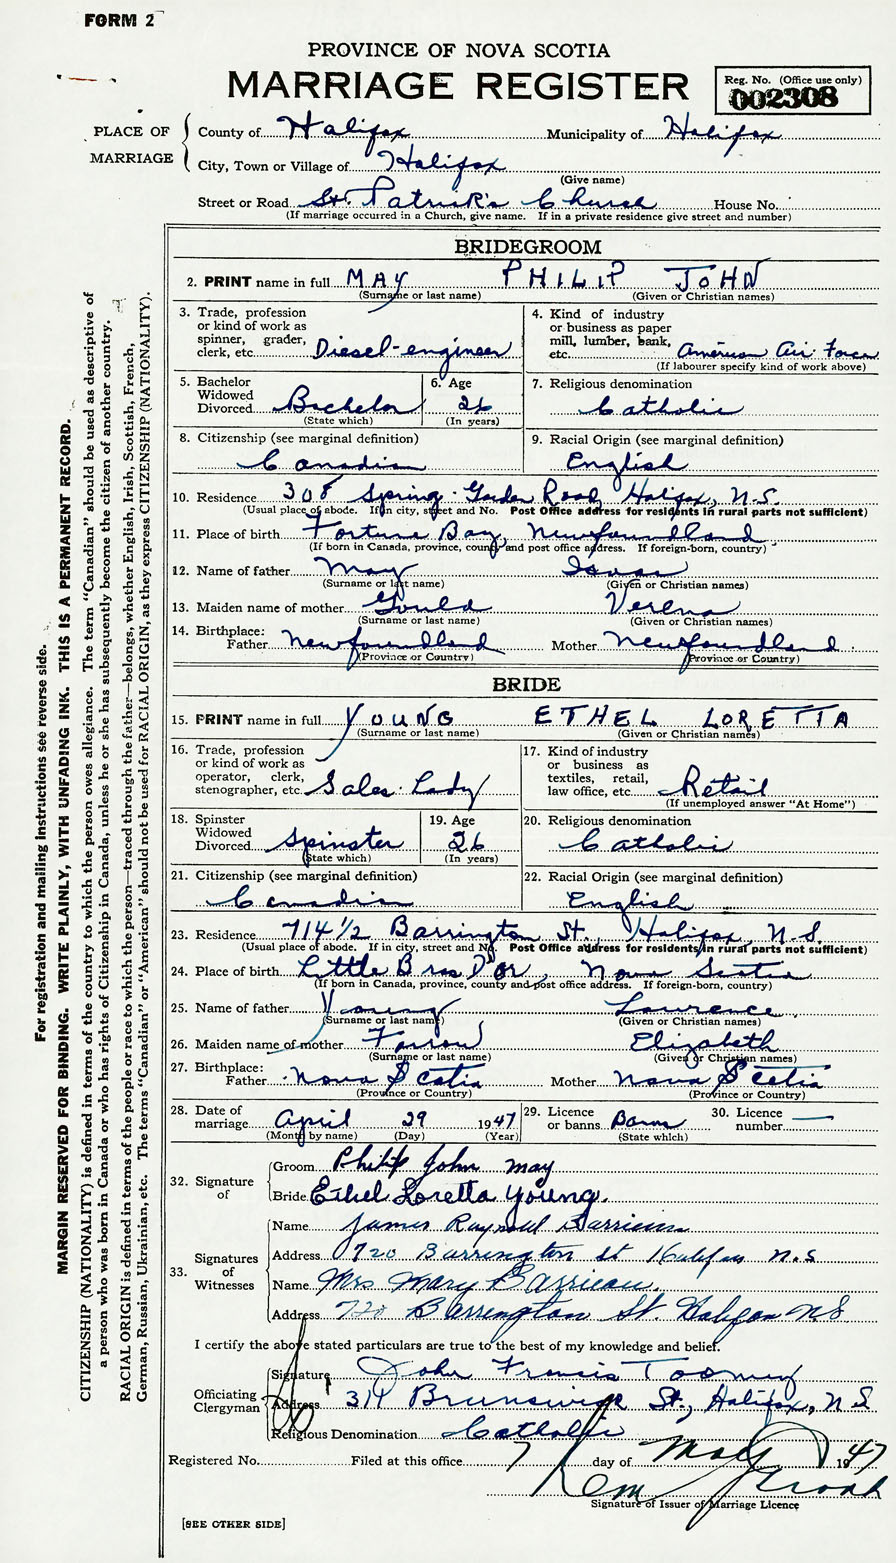 FORM 2
PROVINCE OF NOVA SCOTIA
MARRIAGE REGISTER
Reg. No. (Office use only)
002308
PLACE OF MARRIAGE
County of Halifax Municipality of Halifax
City, Town or Village of Halifax
(Give name)
Street or Road St. Patrick's Church House No.
(If marriage occurred in a Church, give name. If in a private residence give street and number)
BRIDEGROOM
2. PRINT name in full MAY PHILIP JOHN
(Surname or last name) (Given or Christian names)
3. Trade, profession
or kind of work as
spinner, grader,
clerk, etc. Diesel-engineer
4. Kind of industry
or business as paper
mill, lumber, bank,
etc. American Air Force
(If labourer specify kind of work above)
5. Bachelor
Widowed
Divorced Bachelor
(State which)
6. Age
26
(In years)
7. Religious denomination
Catholic
8. Citizenship (see marginal definition)
Canadian
9. Racial Origin (see marginal definition)
English
10. Residence 308 Spring Garden Road, Halifax, N.S.
(Usual place of abode. If in city, street and No. Post Office address for residents in rural parts not sufficient)
11. Place of birth Fortune Bay, Newfoundland
(If born in Canada, province, county and post office address. If foreign-born, country)
12. Name of father May Isaac
(Surname or last name) (Given or Christian names)
13. Maiden name of mother Gould Verena
(Surname or last name) (Given or Christian names)
14. Birthplace:
Father Newfoundland Mother Newfoundland
(Province or Country) (Province or Country)
BRIDE
15. PRINT name in full YOUNG ETHEL LORETTA
(Surname or last name) (Given or Christian names)
16. Trade, profession
or kind of work as
operator, clerk,
stenographer, etc. Sales Lady
17. Kind of industry
or business as
textiles, retail,
law office, etc. Retail
(If unemployed answer "At Home")
18. Spinster
Widowed
Divorced Spinster
(State which)
19. Age
26
(In years)
20. Religious denomination
Catholic
21. Citizenship (see marginal definition)
Canadian
22. Racial Origin (see marginal definition)
English
23. Residence 714 1/2 Barrington St., Halifax, N.S.
(Usual place of abode. If in city, street and No. Post Office address for residents in rural parts not sufficient)
24. Place of birth Little Bras D'Or, Nova Scotia
(If born in Canada, province, county and post office address. If foreign-born, country)
25. Name of father Young Lawrence
(Surname or last name) (Given or Christian names)
26. Maiden name of mother Elizabeth
(Surname or last name) (Given or Christian names)
27. Birthplace:
Father Nova Scotia Mother Nova Scotia
(Province or Country) (Province or Country)
28. Date of
marriage April 29 1947
(Month by name) (Day) (Year)
29. Licence
or banns Banns
(State which)
30. Licence
number
32. Signature
of
Groom Philip John May
Bride Ethel Loretta Young.
33. Signatures
of
Witnesses
Name James Barrieau
Address 720 Barrington St Halifax N.S
Name Mrs Mary Barrieau.
Address 720 Barrington St. Halifax NS
I certify the above stated particulars are true to the best of my knowledge and belief.
Officiating
Clergyman
Signature John Francis Toomey
Address 314 Brunswick St., Halifax, N.S
Religious Denomination Catholic
Registered No. Filed at this office 7 day of May 1947
Signature of Issuer of Marriage Licence
[SEE OTHER SIDE]
For registration and mailing instructions see reverse side.
MARGIN RESERVED FOR BINDING. WRITE PLAINLY, WITH UNFADING INK. THIS IS A PERMANENT RECORD.
CITIZENSHIP (NATIONALITY) is defined in terms of the country to which the person owes allegiance. The term "Canadian" should be used as descriptive of
a person who was born in Canada or who has rights of Citizenship in Canada, unless he or she has subsequently become the citizen of another country.
RACIAL ORIGIN is defined in terms of the people or race to which the person—traced through the father—belongs, whether English, Irish, Scottish, French,
German, Russian, Ukrainian, etc. The terms "Canadian" or "American" should not be used for RACIAL ORIGIN, as they express CITIZENSHIP (NATIONALITY).